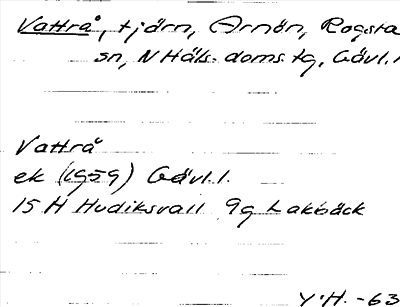 Vattrå, tjärn, Arnön, Rogsta
sn, N Häls. doms. tg, Gävl. l
Vattrå
ek (1959) Gävl. l.
15 H Hudiksvall 9g Lakbäck
Y. H. -63